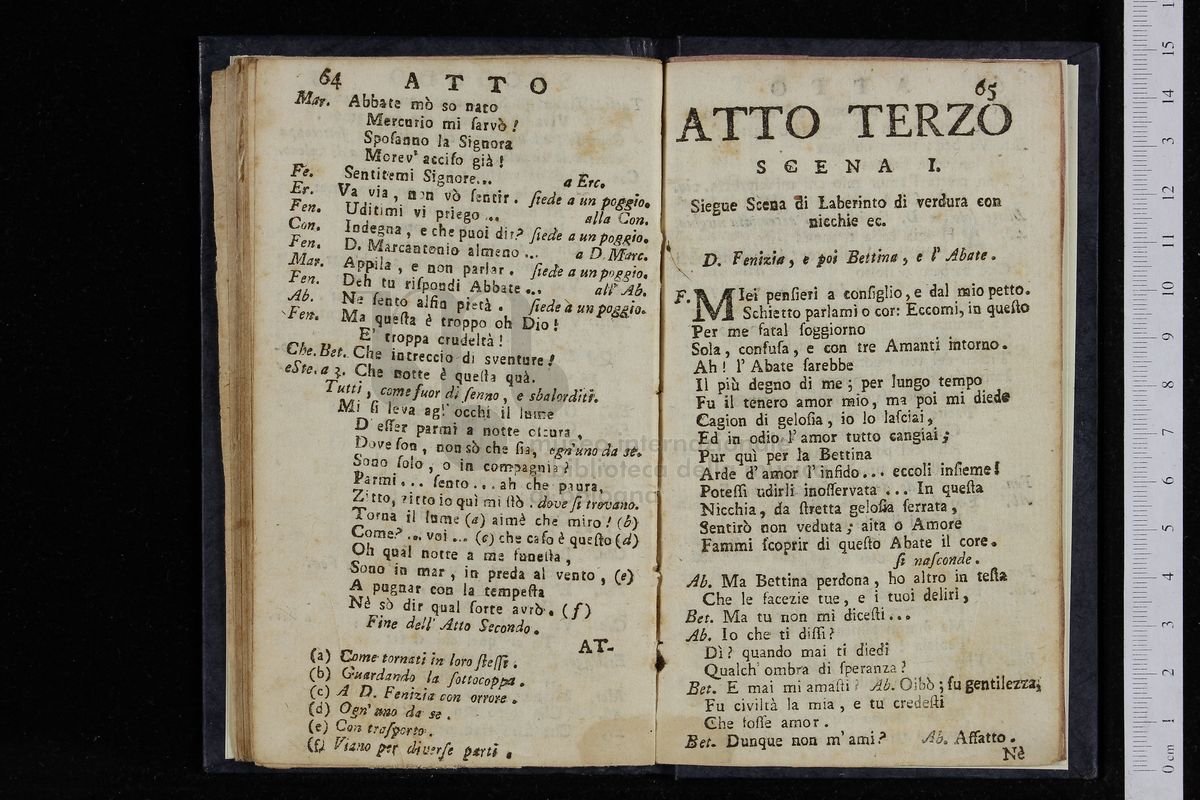 64 ATTO
Mar. Abbate mò so nato
Mercurio mi ſarvò!
Spoſanno la Signora
Morev' acciſo già!
Fe. Sentitemi Signore... a Erc.
Er. Va via, non vò ſentir. ſiede a un poggio.
Fen. Uditimi vi priego ... alla Con.
Con. Indegna, e che puoi dir? ſiede a un poggio.
Fen. D. Marcantonio almeno ... a D. Marc.
Mar. Appila, e non parlar. ſiede a un poggio.
Fen. Deh tu riſpondi Abbate ... all' Ab.
Ab. Ne ſento alfin pietà. ſiede a un poggio.
Fen. Ma queſta è troppo oh Dio!
E' troppa crudeltà!
Che. Bet. Che intreccio di sventure!
e Ste. a 3. Che notte è queſta quà.
Tutti, come fuor di ſenno, e sbalorditi.
Mi ſi leva agl' occhi il lume
D' eſſer parmi a notte oſcura,
Dove ſon, non sò che ſia, ogn' uno da se.
Sono ſolo, o in compagnia?
Parmi... ſento... ah che paura,
Zitto, zitto io quì mi ſtò. dove ſi trovano.
Torna il lume (a) aimè che miro! (b)
Come? ... voi ... (c) che caſo è queſto (d)
Oh qual notte a me funeſta,
Sono in mar, in preda al vento, (e)
A pugnar con la tempeſta
Nè sò dir qual ſorte avrò. (f)
Fine dell' Atto Secondo.
AT-
(a) Come tornati in loro ſteſſi.
(b) Guardando la ſottocoppa.
(c) A D. Fenizia con orrore.
(d) Ogn' uno da se.
(e) Con traſporto.
(f) Viano per diverſe parti.
65
ATTO TERZO
SCENA I.
Siegue Scena di Laberinto di verdura con
nicchie ec.
D. Fenizia, e poi Bettina, e l' Abate.
F. MIei penſieri a conſiglio, e dal mio petto.
Schietto parlami o cor: Eccomi, in queſto
Per me fatal ſoggiorno
Sola, confuſa, e con tre Amanti intorno.
Ah! l' Abate ſarebbe
Il più degno di me; per lungo tempo
Fu il tenero amor mio, ma poi mi diede
Cagion di geloſia, io lo laſciai,
Ed in odio l' amor tutto cangiai;
Pur quì per la Bettina
Arde d' amor l' infido... eccoli inſieme!
Poteſſi udirli inoſſervata ... In queſta
Nicchia, da ſtretta geloſia ſerrata,
Sentirò non veduta; aita o Amore
Fammi ſcoprir di queſto Abate il core.
ſi naſconde.
Ab. Ma Bettina perdona, ho altro in teſta
Che le facezie tue, e i tuoi deliri,
Bet. Ma tu non mi diceſti...
Ab. Io che ti diſſi?
Dì? quando mai ti diedi
Qualch' ombra di ſperanza?
Bet. E mai mi amaſti? Ab. Oibò; fu gentilezza;
Fu civiltà la mia, e tu credeſti
Che foſſe amor.
Bet. Dunque non m' ami? Ab. Affatto.
Nè
museo internazionale
biblioteca della
di bologna
0 cm 1 2 3 4 5 6 7 8 9 10 11 12 13 14 15